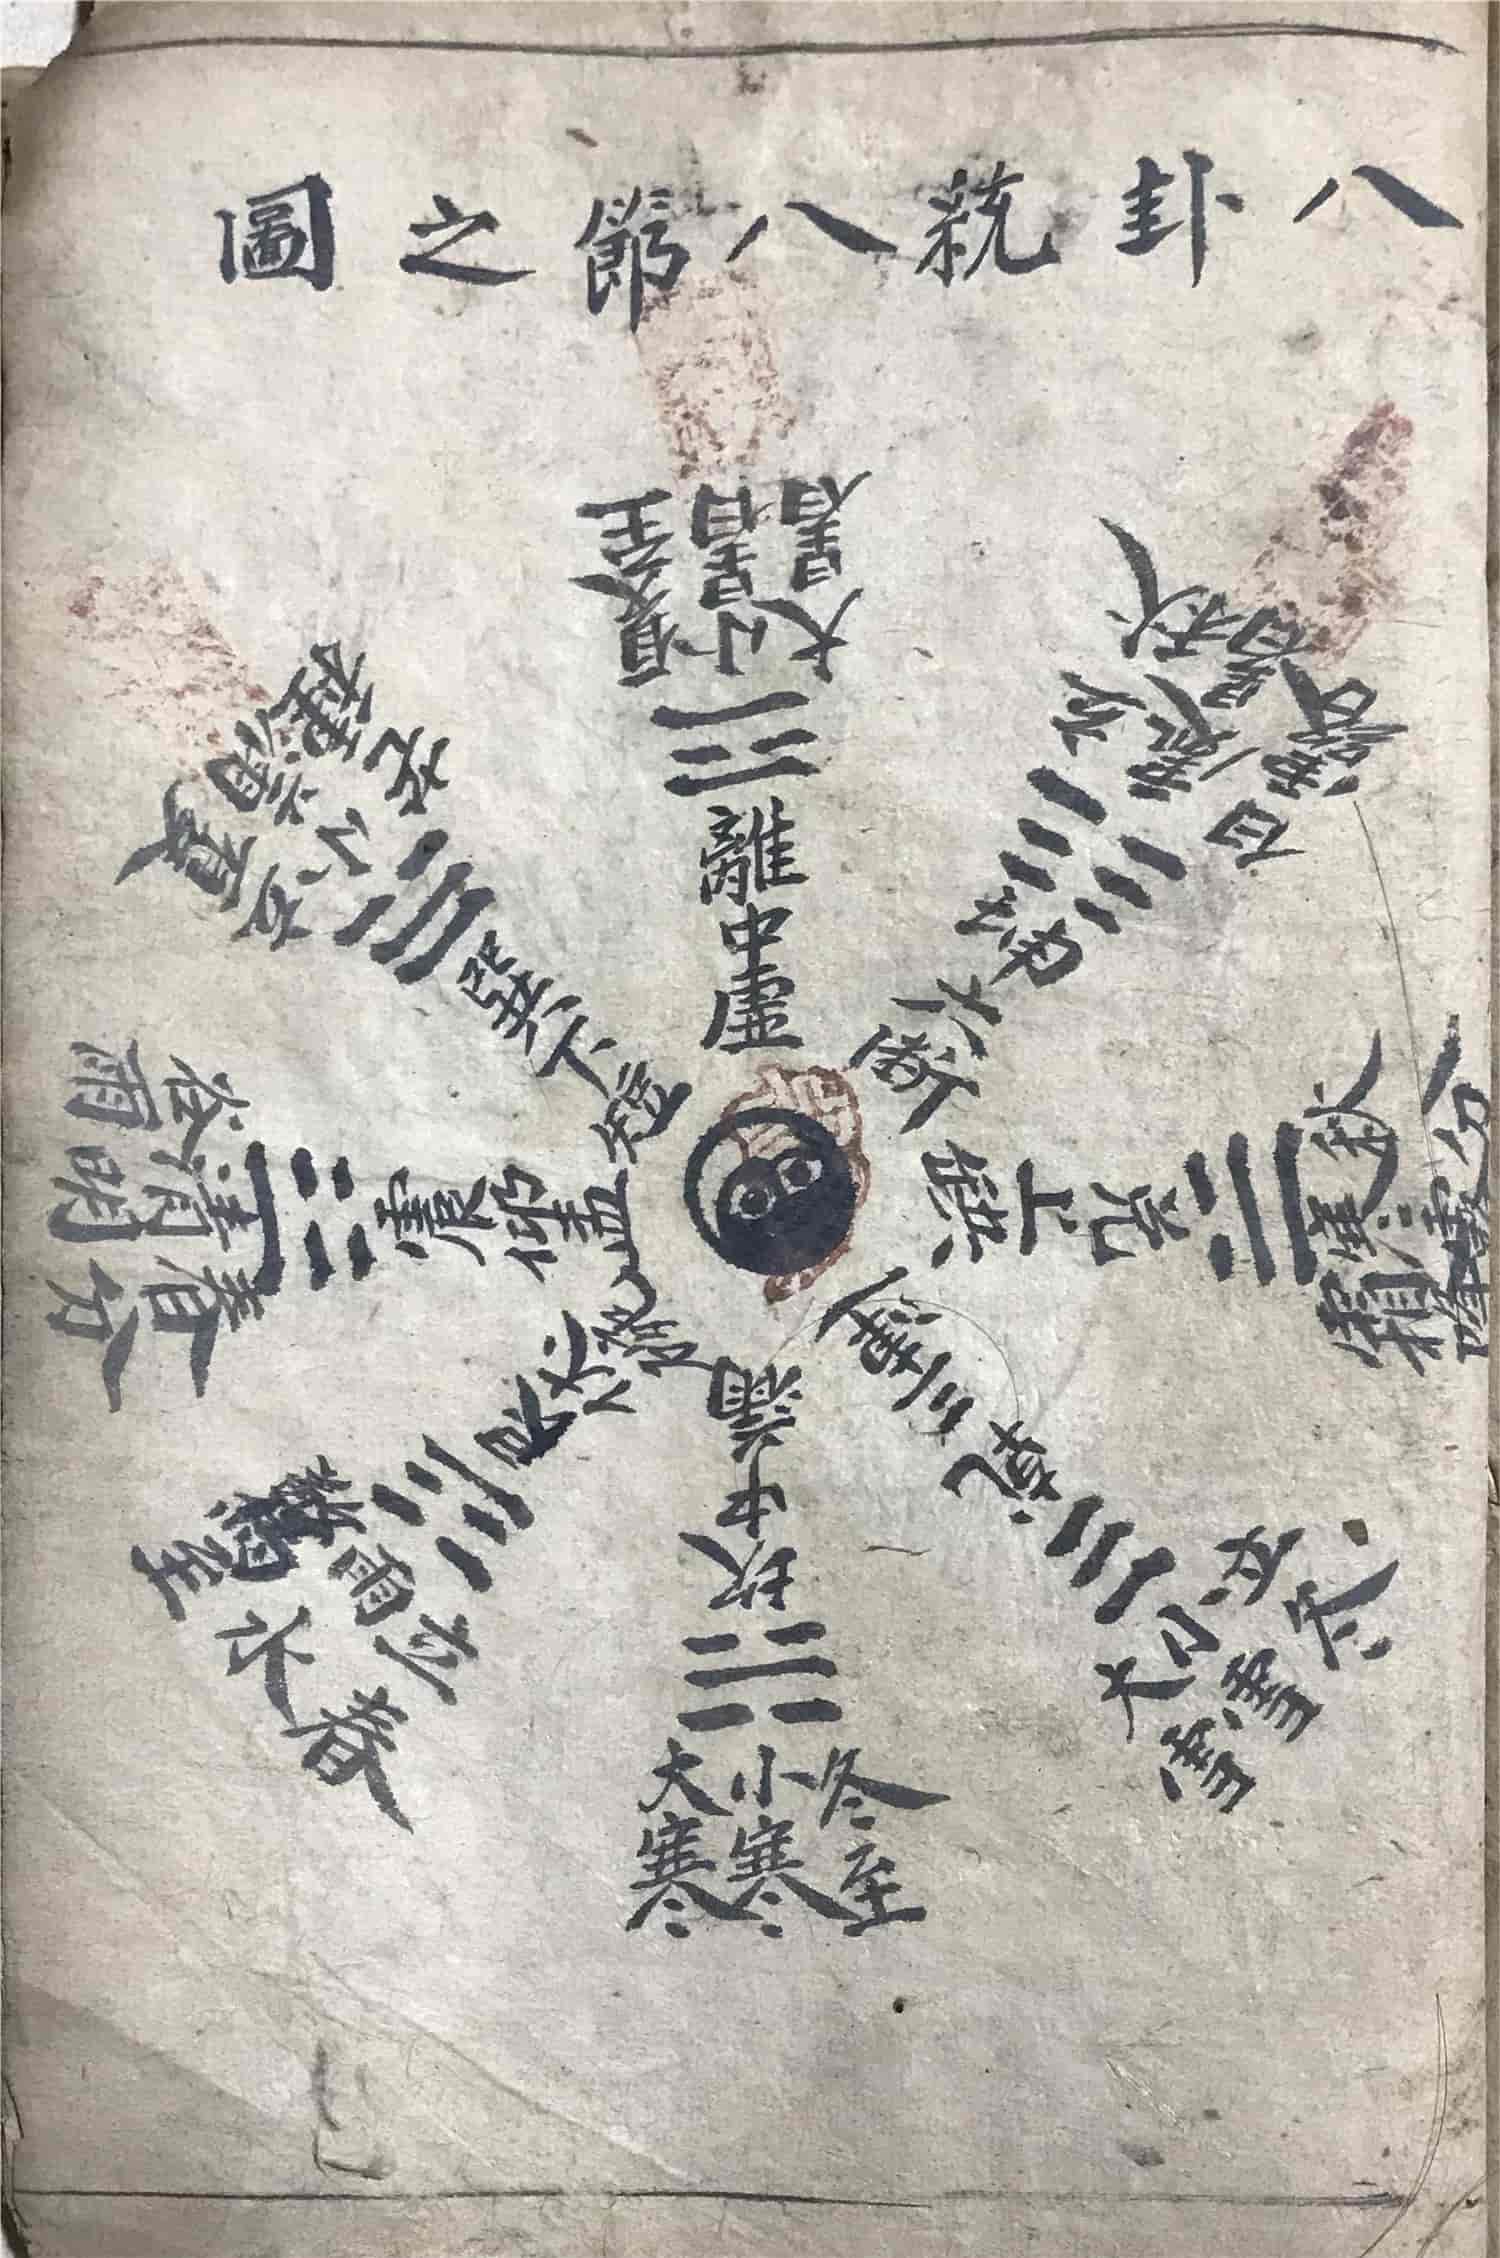 八卦統八節之圖
離中虛
夏至
小暑
大暑
坤六斷
立秋
處暑
白露
兌上
秋分
寒露
霜降
乾三
立冬
小雪
大雪
坎中滿
冬至
小寒
大寒
艮
立春
雨水
震仰盂
春分
清明
谷雨
巽下
立夏
小滿
芒種